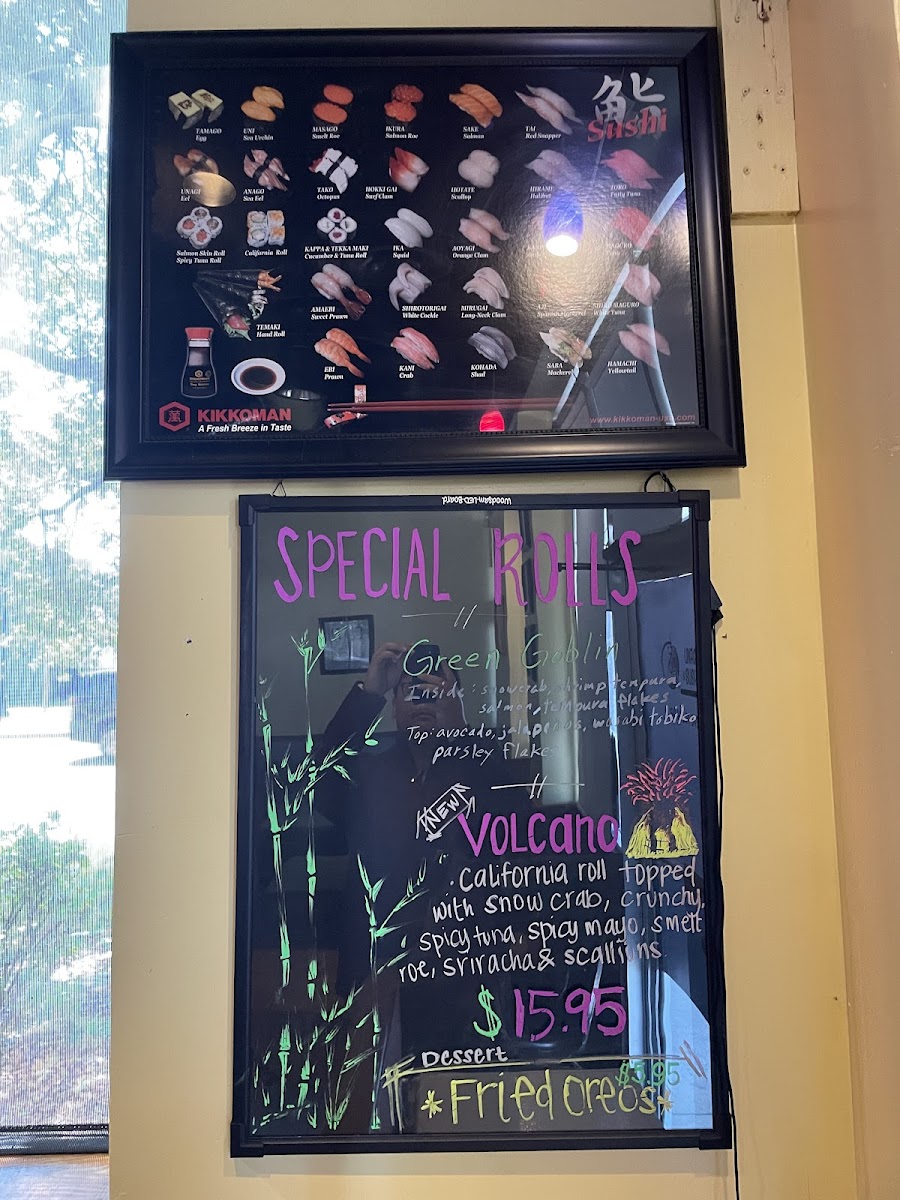 鮨
Sushi
TAMAGO
Egg
UNI
Sea Urchin
MASAGO
Smelt Roe
IKURA
Salmon Roe
SAKE
Salmon
TAI
Red Snapper
UNAGI
Eel
ANAGO
Sea Eel
TAKO
Octopus
HOKKI GAI
Surf Clam
HOTATE
Scallop
HIRAME
Halibut
TORO
Fatty Tuna
Salmon Skin Roll
Spicy Tuna Roll
California Roll
KAPPA & TEKKA MAKI
Cucumber & Tuna Roll
IKA
Squid
AOYAGI
Orange Clam
MAGURO
TEMAKI
Hand Roll
AMAEBI
Sweet Prawn
SHIROTORIGAI
White Cockle
MIRUGAI
Long-Neck Clam
SHIRO MAGURO
White Tuna
EBI
Prawn
KANI
Crab
KOHADA
Shad
SABA
Mackerel
HAMACHI
Yellowtail
KIKKOMAN
A Fresh Breeze in Taste
www.kikkoman-usa.com
Woodsam LED Board
SPECIAL ROLLS
Green Goblin
Inside: snowcrab, shrimp tempura,
salmon, tempura flakes
Top: avocado, jalapenos, wasabi tobiko
parsley flakes
NEW
VOLCANO
California roll topped
with snow crab, crunchy,
spicy tuna, spicy mayo, smelt
roe, sriracha & scallions
$15.95
Dessert
$5.95
*Fried Oreos*